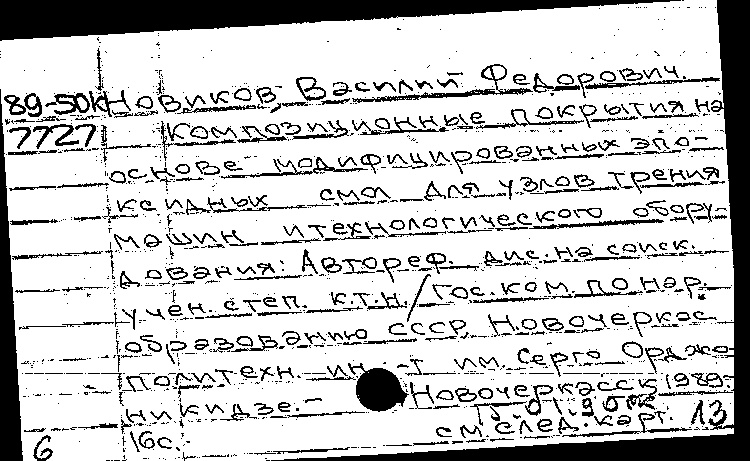 89-50к Новиков, Василий Федорович.
7727 Композиционные покрытия на
основе модифицированных эпо-
ксидных смол для узлов трения
машин и технологического обору-
дования: Автореф. дис. на соиск.
учен. степ. к.т.н. / Гос. ком. по нар.
образованию СССР, Новочеркас.
политехн. ин-т им. Серго Орджо-
никидзе. - Новочеркасск, 1989.
16с.
см. след. карт. 13
6